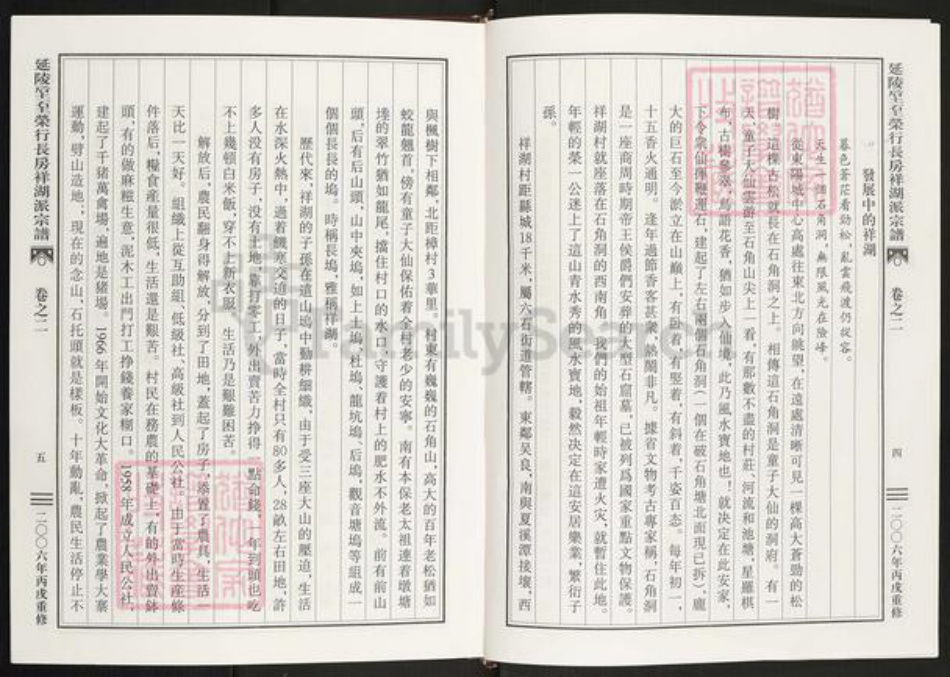 延陵堂享榮行長房祥湖派宗譜
卷之二
四
二〇〇六年丙戌重修
發展中的祥湖
暮色蒼茫看勁松，亂雲飛渡仍從容。
天生一個石角洞，無限風光在險峰。
從東陽城中心高處往東北方向眺望，在遠處清晰可見一棵高大蒼勁的松
樹，這棵古松就長在石角洞之上。相傳這石角洞是童子大仙的洞府。有一
天，童子大仙雲游至石角山尖上一看，有那數不盡的村莊、河流和池塘，星羅棋
布，古樹參翠，鳥語花香，猶如步入仙境，此乃風水寶地也！就決定在此安家，
下令衆仙揮鞭運石，建起了左右兩個石角洞（一個在破石角塘北面現已拆），龐
大的巨石至今淤立在山巔上，有卧着，有竪着，有斜着，千姿百态。每年初一，
十五香火通明。逢年過節香客甚衆，熱鬧非凡。據省文物考古專家稱，石角洞
是一座商周時期帝王侯爵們安葬的大型石窟墓，已被列爲國家重點文物保護。
祥湖村就座落在石角洞的西南角，我們的始祖年輕時家遭火灾，就暫住此地。
年輕的榮一公迷上了這山青水秀的風水寶地，毅然决定在這安居樂業，繁衍子
孫。
祥湖村距縣城18千米，屬六石街道管轄。東鄰吴良，南與夏溪潭接壤，西
與楓樹下相鄰，北距樟村3華里。村東有巍巍的石角山，高大的百年老松猶如
蛟龍翹首，傍有童子大仙保佑着全村老少的安寧。南有本保老太祖連着墩塘
埭的翠竹猶如龍尾。擋住村口的水口，守護着村上的肥水不外流。前有前山
頭，后有后山頭，山中夾塢，如上土塢，杜塢、龍坑塢、后塢，觀音塘塢等組成一
個個長長的塢。時稱長塢，雅稱祥湖。
歷代來，祥湖的子孫在這山塢中勤耕細織，由于受三座大山的壓迫，生活
在水深火熱中，過着饑寒交迫的日子，當時全村只有80多人，28畝左右田地，許
多人没有房子，没有土地，靠打零工，外出賣苦力挣得一點命錢，一年到頭也吃
不上幾頓白米飯，穿不上新衣服，生活乃是艱難困苦。
解放后，農民翻身得解放，分到了田地，蓋起了房子，添置了農具，生活一
天比一天好。組織上從互助組、低級社、高級社到人民公社，由于當時生産條
件落后，糧食産量很低，生活還是艱苦。村民在務農的基礎上，有的外出賣鉢
頭，有的做麻糍生意，泥木工出門打工挣錢養家糊口。1958年成立人民公社，
建起了千猪萬禽場，遍地是猪場。1966年開始文化大革命，掀起了農業學大寨
運動，劈山造地，現在的念山，石托頭就是樣板。十年動亂，農民生活停止不
延陵堂享榮行長房祥湖派宗譜
卷之二
五
二〇〇六年丙戌重修
FamilySearch